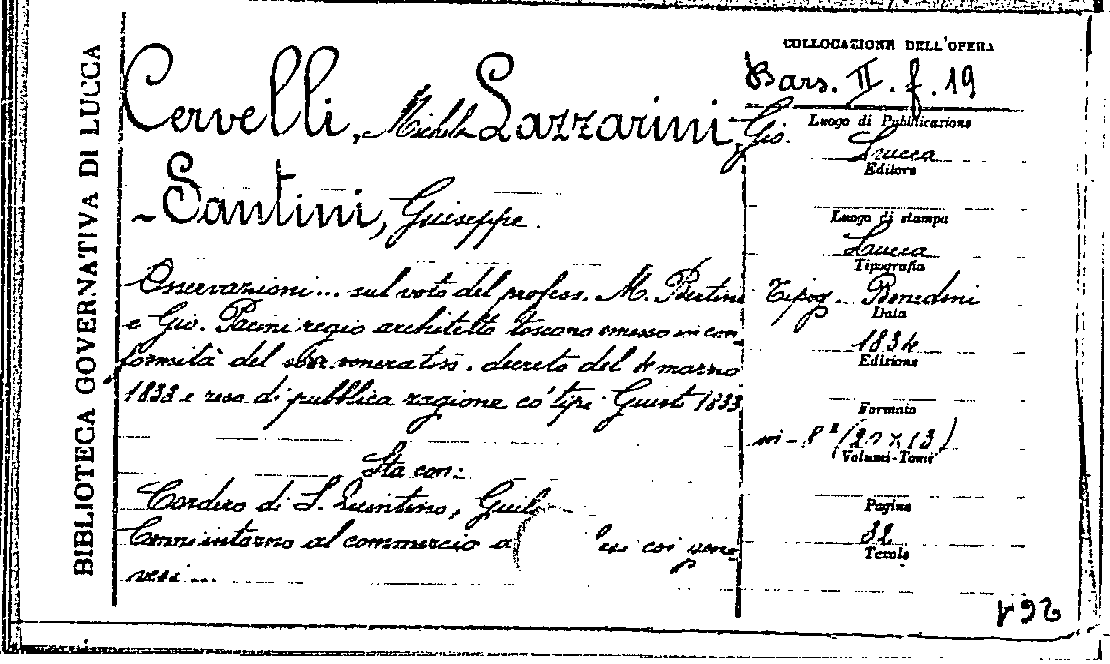 BIBLIOTECA GOVERNATIVA DI LUCCA
Cervelli, Michele Lazzarini, Gio.
- Santini, Giuseppe.
Osservazioni... sul voto del profess. M. Bertini
e Gio. Pacini regio architetto toscano emesso in con
formità del veneratiss. decreto del marzo
1833 e reso di pubblica ragione co' tipi Giusti 1833
Sta con:
Cordero di S. Quintino, Giulio
Cenni intorno al commercio coi gene
vesi ...
COLLOCAZIONE DELL'OPERA
Bars. II. f. 19
Luogo di Pubblicazione
Lucca
Editore
Luogo di stampa
Lucca
Tipografia
Tipog. Benedini
Data
1834
Edizione
Formato
in-8° (20 x 13)
Volumi-Tomi
Pagine
32
Tavole
792